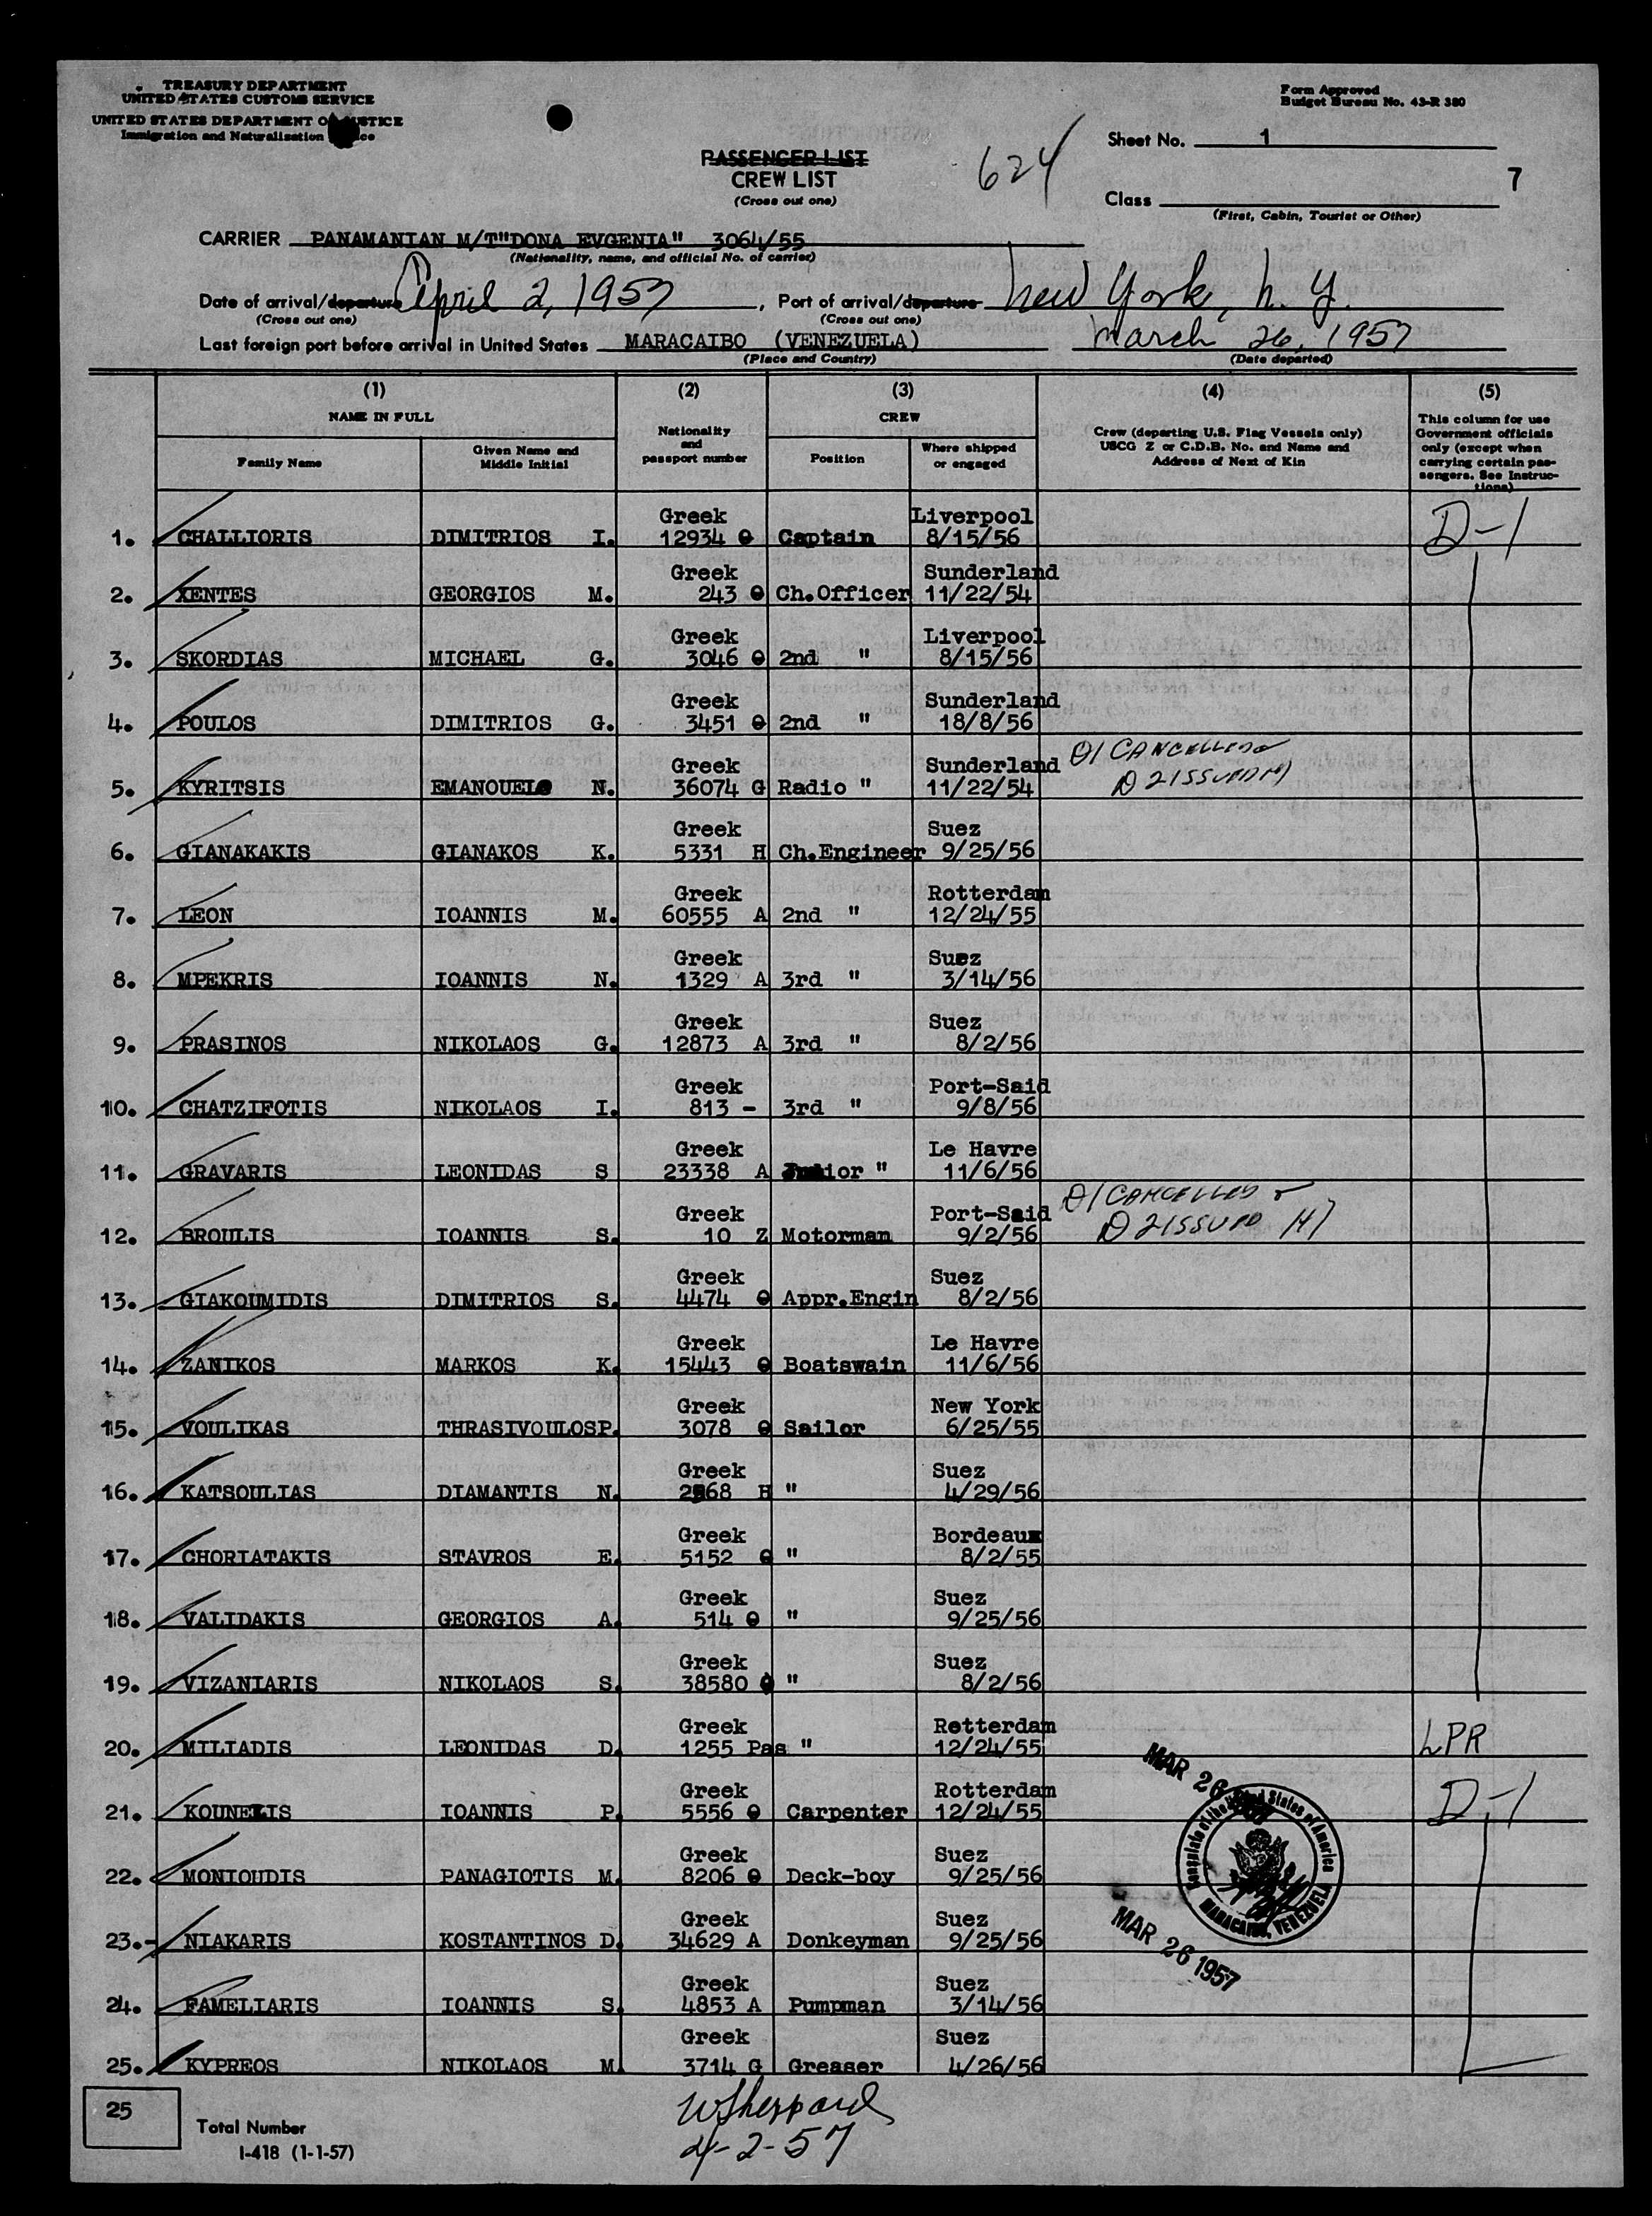 TREASURY DEPARTMENT
UNITED STATES CUSTOMS SERVICE
UNITED STATES DEPARTMENT OF JUSTICE
Immigration and Naturalization
Form Approved
Budget Bureau No. 43-R 380
Sheet No. 1
PASSENGER LIST
CREW LIST
(Cross out one)
624
7
Class
(First, Cabin, Tourist or Other)
CARRIER PANAMANIAN M/T"DONA EVGENIA" 3064/55
(Nationality, name, and official No. of carrier)
Date of arrival/departure April 2, 1957, Port of arrival/departure New York, N. Y.
(Cross out one) (Cross out one)
Last foreign port before arrival in United States MARACAIBO (VENEZUELA) March 26, 1957
(Place and Country) (Date departed)
(1) (2) (3) (4) (5)
NAME IN FULL
Family Name
Given Name and Middle Initial
Nationality and passport number
CREW
Position
Where shipped or engaged
Crew (departing U.S. Flag Vessels only)
USCG Z or C.D.B. No. and Name and
Address of Next of Kin
This column for use
Government officials
only (except when
carrying certain pas-
sengers. See Instruc-
tions)
Greek Liverpool
1. CHALLIORIS DIMITRIOS I. 12934 Θ Captain 8/15/56 D-1
Greek Sunderland
2. XENTES GEORGIOS M. 243 Θ Ch.Officer 11/22/54
Greek Liverpool
3. SKORDIAS MICHAEL G. 3046 Θ 2nd " 8/15/56
Greek Sunderland
4. POULOS DIMITRIOS G. 3451 Θ 2nd " 18/8/56
Greek Sunderland D1 CANCELLED &
5. KYRITSIS EMANOUEL N. 36074 G Radio " 11/22/54 D 2 ISSUED
Greek Suez
6. GIANAKAKIS GIANAKOS K. 5331 H Ch.Engineer 9/25/56
Greek Rotterdam
7. LEON IOANNIS M. 60555 A 2nd " 12/24/55
Greek Suez
8. MPEKRIS IOANNIS N. 1329 A 3rd " 3/14/56
Greek Suez
9. PRASINOS NIKOLAOS G. 12873 A 3rd " 8/2/56
Greek Port-Said
10. CHATZIFOTIS NIKOLAOS I. 813 - 3rd " 9/8/56
Greek Le Havre
11. GRAVARIS LEONIDAS S 23338 A Junior " 11/6/56
Greek Port-Said D1 CANCELLED &
12. BROULIS IOANNIS S. 10 Z Motorman 9/2/56 D 2 ISSUED
Greek Suez
13. GIAKOUMIDIS DIMITRIOS S. 4474 Θ Appr.Engin 8/2/56
Greek Le Havre
14. ZANIKOS MARKOS K. 15443 Θ Boatswain 11/6/56
Greek New York
15. VOULIKAS THRASIVOULOS P. 3078 Θ Sailor 6/25/55
Greek Suez
16. KATSOULIAS DIAMANTIS N. H " 4/29/56
Greek Bordeaux
17. CHORIATAKIS STAVROS E. 5152 Θ " 8/2/55
Greek Suez
18. VALIDAKIS GEORGIOS A. 514 Θ " 9/25/56
Greek Suez
19. VIZANIARIS NIKOLAOS S. 38580 Θ " 8/2/56
Greek Rotterdam
20. MILIADIS LEONIDAS D. 1255 Pas " 12/24/55 LPR
Greek Rotterdam
21. KOUNELIS IOANNIS P. 5556 Θ Carpenter 12/24/55 D-1
Greek Suez
22. MONIOUDIS PANAGIOTIS M. 8206 Θ Deck-boy 9/25/56
Greek Suez
23.- NIAKARIS KOSTANTINOS D. 34629 A Donkeyman 9/25/56
Greek Suez
24. FAMELIARIS IOANNIS S. 4853 A Pumpman 3/14/56
Greek Suez
25. KYPREOS NIKOLAOS M. 3714 G Greaser 4/26/56
MAR 26
Consulate of the United States of America
MARACAIBO, VENEZUELA
MAR 26 1957
25
Total Number
I-418 (1-1-57)
W Sheppard
4-2-57